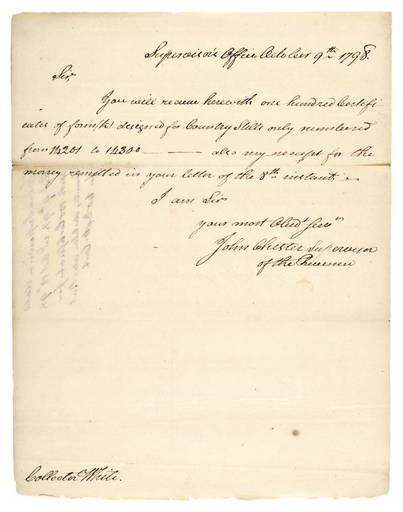 Supervisor's Office October 9th 1798.
Sir,
You will receive herewith one hundred Certifi
cates of form designed for Country Stills only numbered
from 14201 to 14300 — also my receipt for the
money remitted in your letter of the 8th instant. —
I am Sir
your most Obedt Servt
John Chester Supervisor
of the Revenue
Collector White.